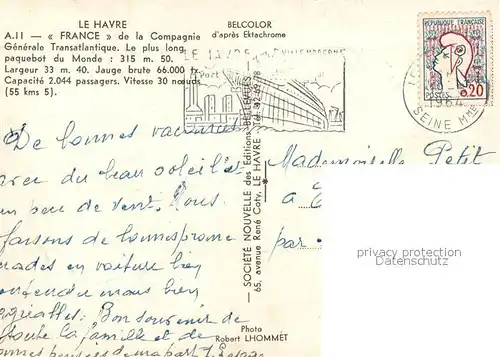 LE HAVRE
A.11 — « FRANCE » de la Compagnie
Générale Transatlantique. Le plus long
paquebot du Monde : 315 m. 50.
Largeur 33 m. 40. Jauge brute 66.000 tx
Capacité 2.044 passagers. Vitesse 30 nœuds
(55 kms 5).
BELCOLOR
d'après Ektachrome
LE HAVRE
Port
RÉPUBLIQUE FRANÇAISE
POSTES
0,20
1964
SEINE MME
De bonnes vacances
avec du beau soleil et
un peu de vent. Nous
faisons de bonnes prome
nades en voiture bien
entendu mais bien
Bon souvenir de
toute la famille et de
SOCIÉTÉ NOUVELLE des Éditions BELLEVUES
65, avenue René Coty, LE HAVRE - Tél. 42-69-78
Mademoiselle Petit
à
par
privacy protection
DATENSCHUTZ
Photo
Robert LHOMMET